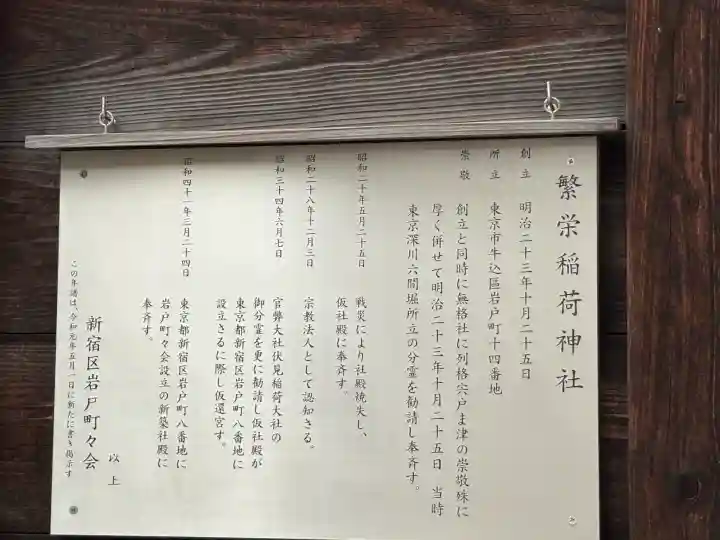 繁栄稲荷神社
創立 明治二十三年十月二十五日
所立 東京市牛込區岩戸町十四番地
崇敬 創立と同時に無格社に列格宍戸ま津の崇敬殊に
厚く併せて明治二十三年十月二十五日 当時
東京深川六間堀所立の分霊を勧請し奉斉す。
昭和二十年五月二十五日 戦災により社殿焼失し、
仮社殿に奉斉す。
昭和二十八年十二月三日 宗教法人として認知さる。
昭和三十四年六月七日 官弊大社伏見稲荷大社の
御分霊を更に勧請し仮社殿が
東京都新宿区岩戸町八番地に
設立さるに際し仮還宮す。
昭和四十一年三月二十四日 東京都新宿区岩戸町八番地に
岩戸町々会設立の新築社殿に
奉斉す。
以上
新宿区岩戸町々会
この年譜は、令和元年五月一日に新たに書き掲示す